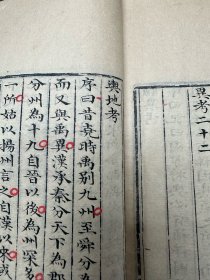 輿地考
序曰昔堯時禹別九州至舜分
而又與禹異漢承秦分天下為郡
分州為十九自晉以後為州寀多
一所姑以揚州言之自漢以來或
異考二十二